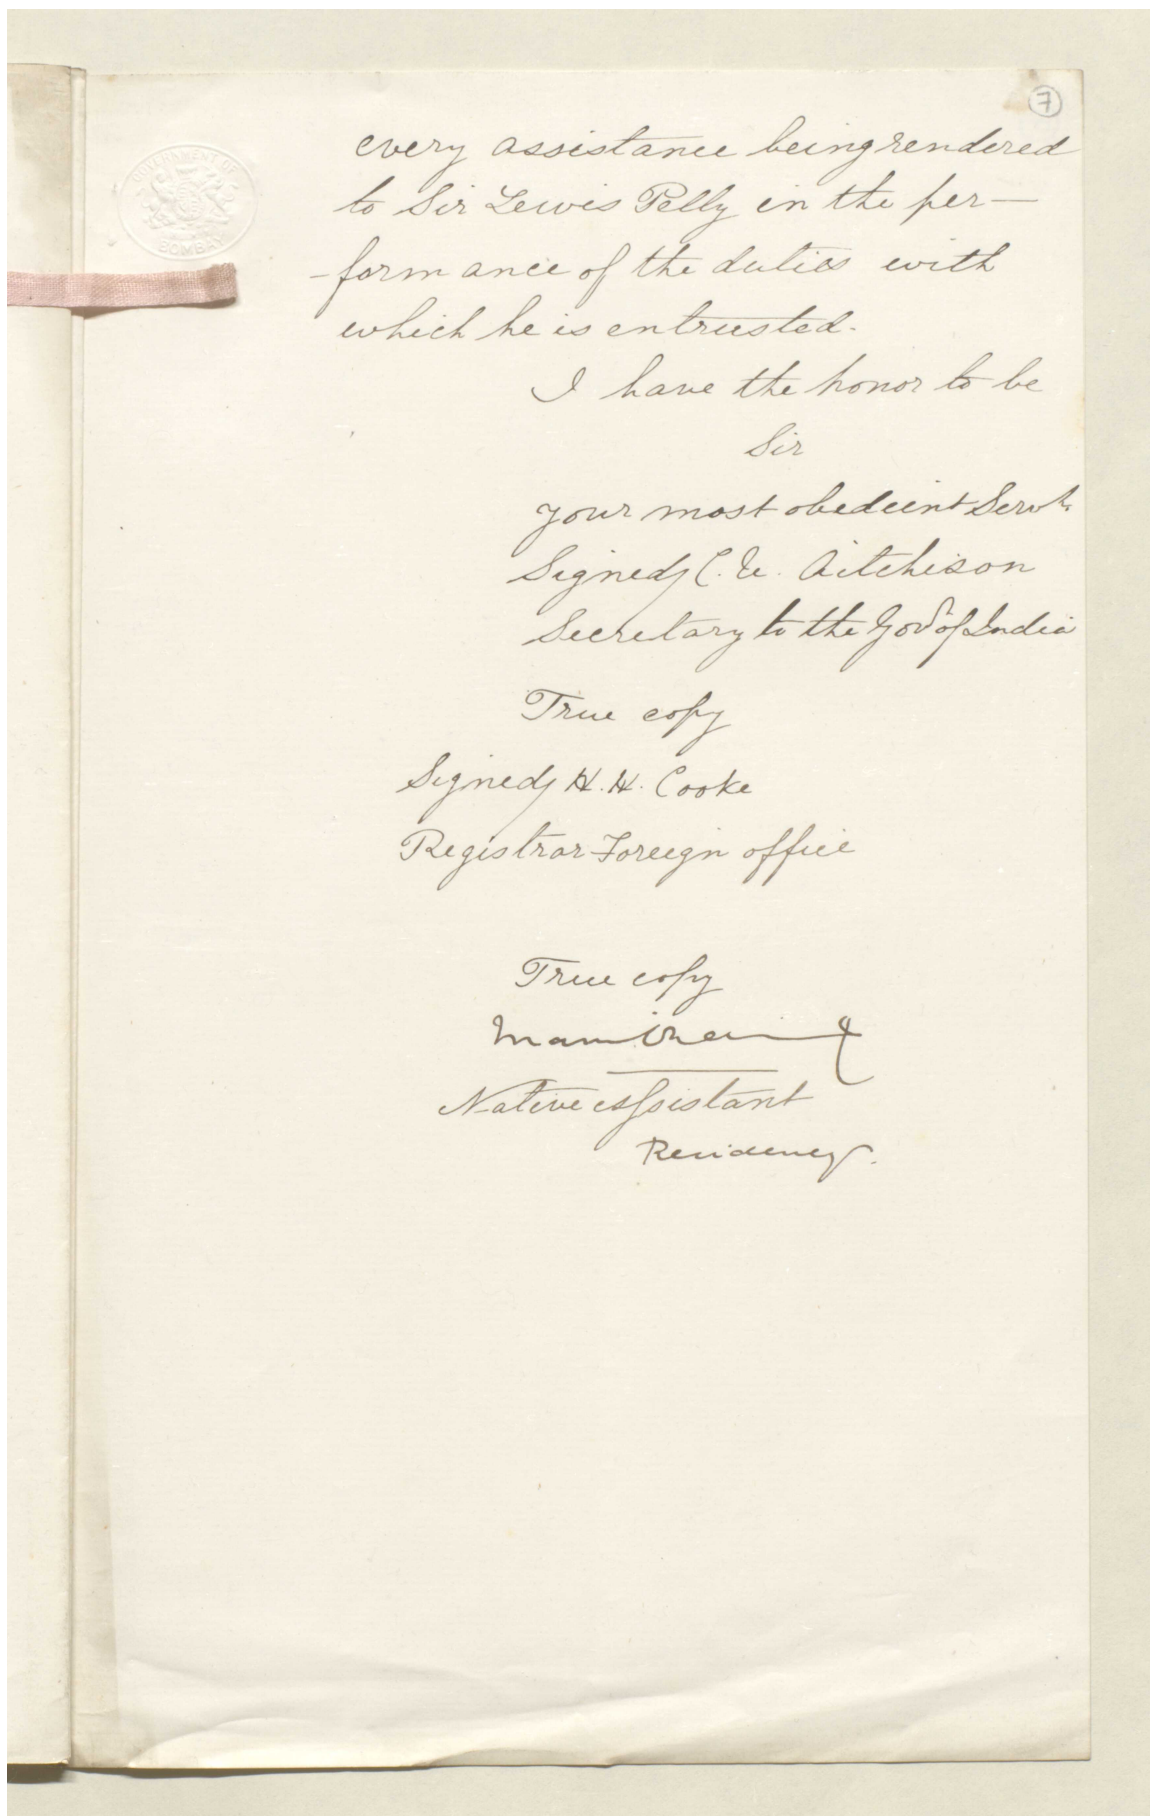 7
GOVERNMENT OF
BOMBAY
every assistance being rendered
to Sir Lewis Pelly in the per—
-formance of the duties with
which he is entrusted.
I have the honor to be
Sir
your most obedient Servt.
Signed C. U. Aitchison
Secretary to the Govt of India
True copy
Signed H. H. Cooke
Registrar Foreign office
True copy
Native assistant
Residency.